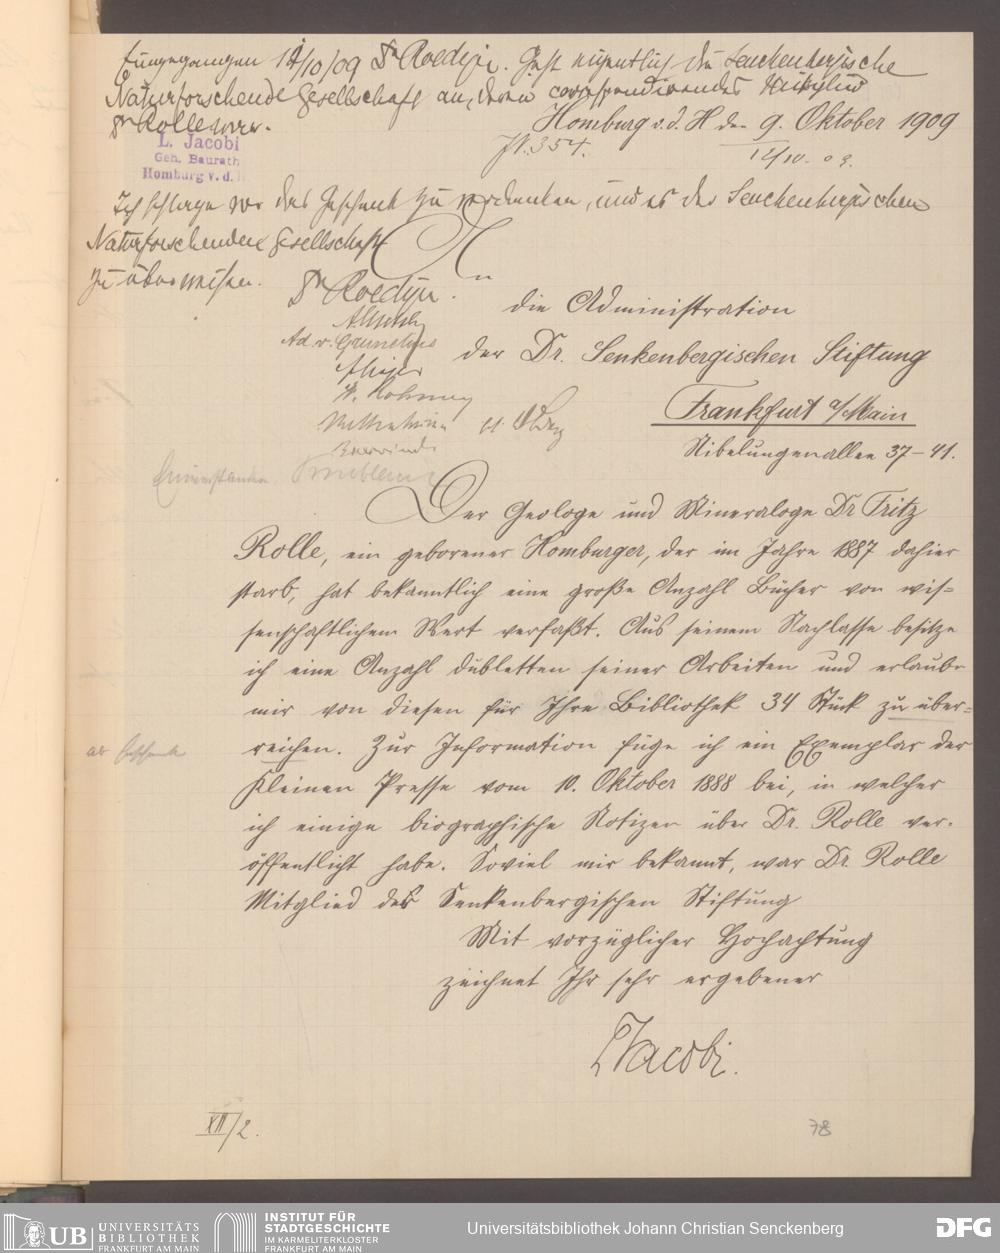 Eingegangen 12/10/09 Dr Roediger. Geht eigentlich die Senckenbergische
Naturforschende Gesellschaft an, deren correspondirendes Mitglied
Dr Rolle war.
Homburg v. d. H den 9. Oktober 1909
J№ 354.
12/10. 09.
L. Jacobi
Geh. Baurath
Homburg v. d. H.
Ich schlage vor das Geschenk zu verdanken, und es der Senckenbergischen
Naturforschenden Gesellschaft
zu überweisen.
Dr Roediger.
An
die Administration
der Dr. Senkenbergischen Stiftung
Frankfurt a/Main
Nibelungenallee 37-41.
Ad. v. Grunelius
Einverstanden
Der Geologe und Mineraloge Dr Fritz
Rolle, ein geborener Homburger, der im Jahre 1887 dahier
starb, hat bekanntlich eine große Anzahl Bücher von wis=
senschaftlichem Wert verfaßt. Aus seinem Nachlasse besitze
ich eine Anzahl Dubletten seiner Arbeiten und erlaube
mir von diesen für Ihre Bibliothek 34 Stück zu über=
reichen. Zur Information füge ich ein Exemplar der
als Geschenk
Kleinen Presse vom 10. Oktober 1888 bei, in welcher
ich einige biographische Notizen über Dr. Rolle ver-
öffentlicht habe. Soviel mir bekannt, war Dr. Rolle
Mitglied der Senkenbergischen Stiftung
Mit vorzüglicher Hochachtung
zeichnet Ihr sehr ergebener
LJacobi.
XII/2.
78
UB UNIVERSITÄTS
BIBLIOTHEK
FRANKFURT AM MAIN
INSTITUT FÜR
STADTGESCHICHTE
IM KARMELITERKLOSTER
FRANKFURT AM MAIN
Universitätsbibliothek Johann Christian Senckenberg
DFG